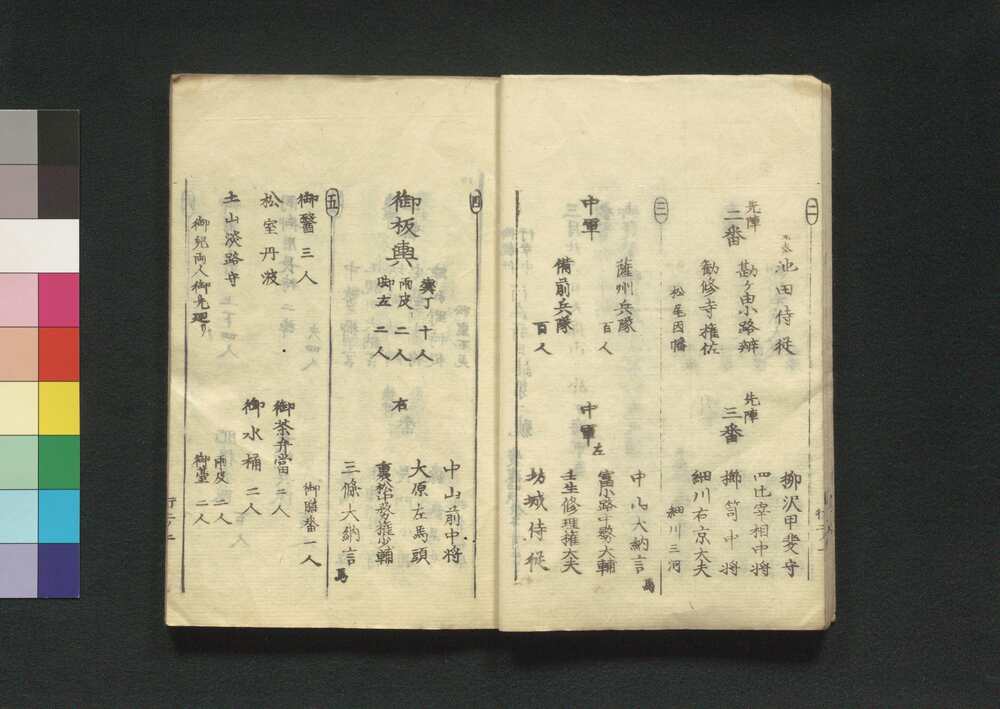 二
池田侍従
先陣
二番
勘ケ由小路辨
勧修寺権佐
松尾因幡
柳沢甲斐守
先陣
三番
四辻宰相中将
櫛笥中将
細川右京大夫
細川三河
三
薩州兵隊
百人
中軍
備前兵隊
百人
中山大納言
馬
中軍
左
富小路中務大輔
壬生修理権大夫
坊城侍従
四
御板輿
輿丁十人
雨皮二人
御左二人
右
中山前中将
大原左馬頭
裏松中務権少輔
三條大納言
馬
五
御醫三人
松室丹波
土山淡路守
御児両人御先廻リ
御膳番一人
御茶弁當二人
御水桶二人
雨皮二人
二人